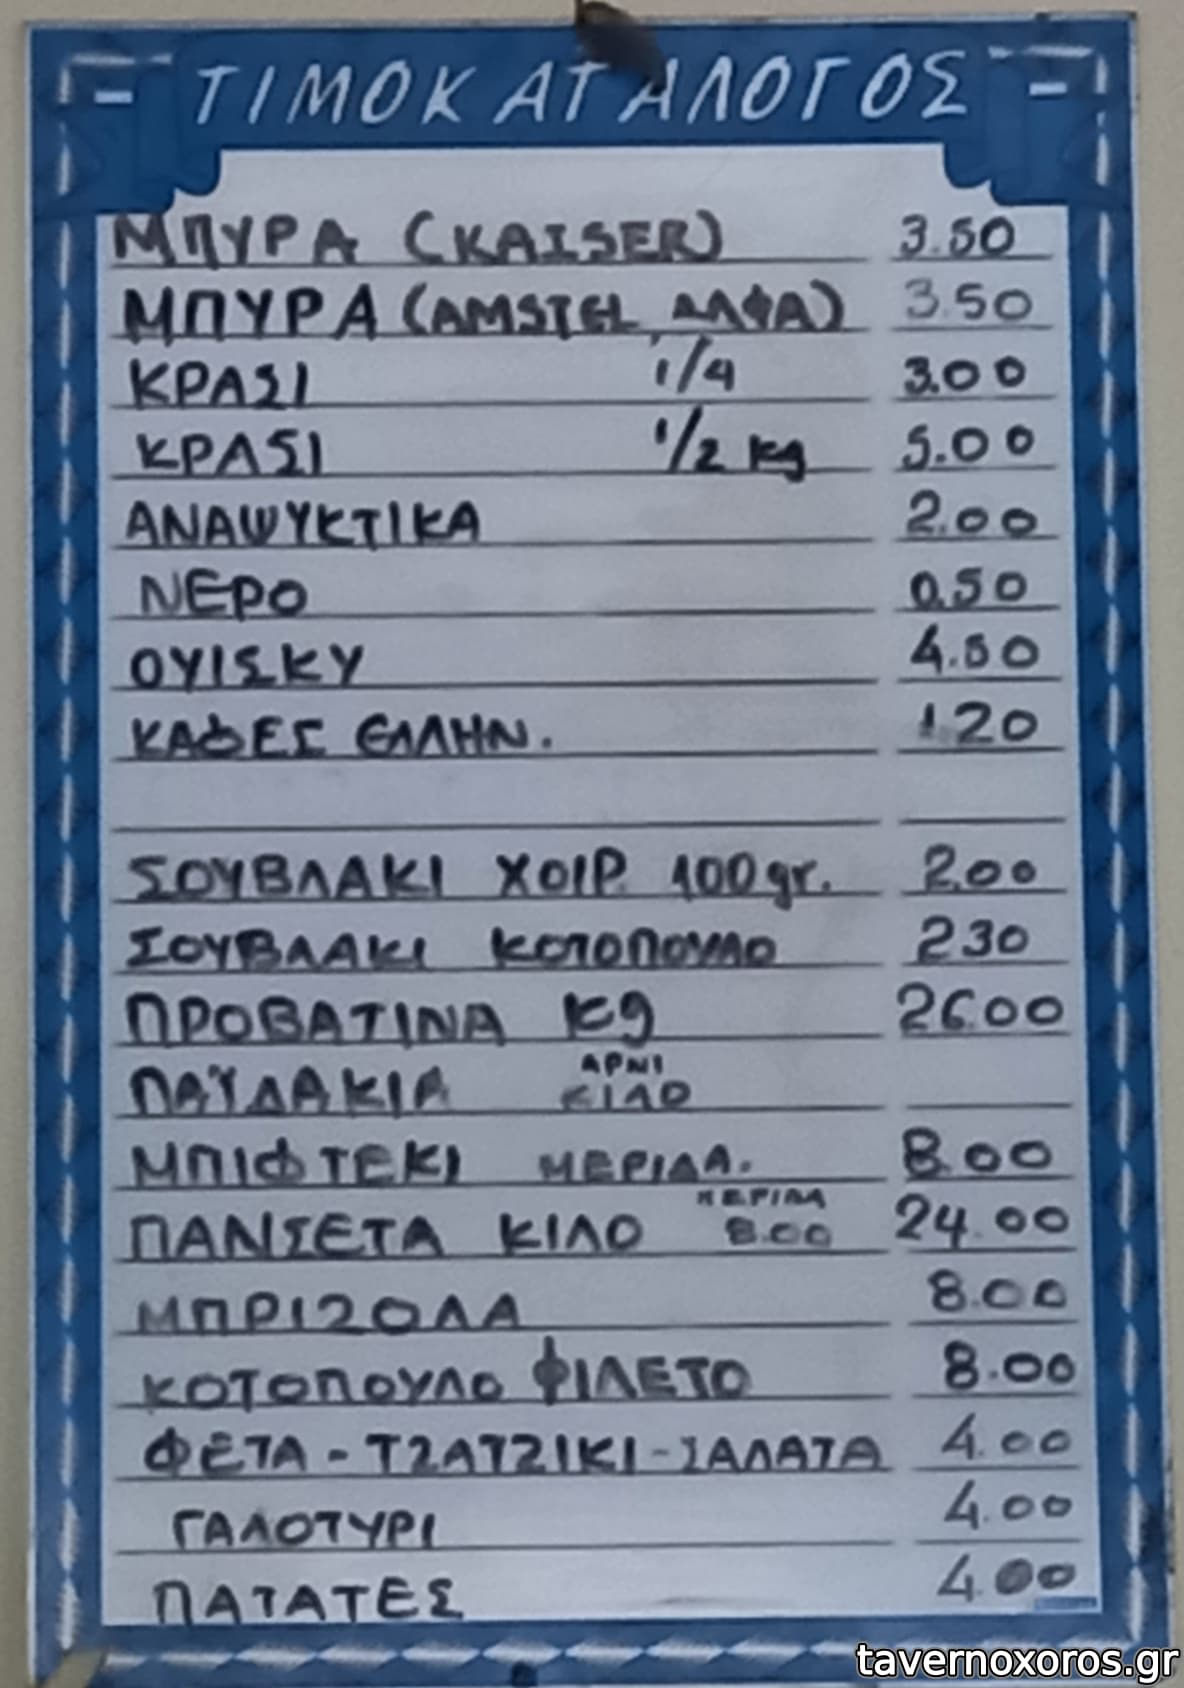 ΤΙΜΟΚΑΤΑΛΟΓΟΣ
ΜΠΥΡΑ (KAISER) 3.50
ΜΠΥΡΑ (AMSTEL, ΑΛΦΑ) 3.50
ΚΡΑΣΙ 1/4 3.00
ΚΡΑΣΙ 1/2 kg 5.00
ΑΝΑΨΥΚΤΙΚΑ 2.00
ΝΕΡΟ 0.50
ΟΥΙΣΚΥ 4.50
ΚΑΦΕΣ ΕΛΛΗΝ. 1.20
ΣΟΥΒΛΑΚΙ ΧΟΙΡ. 100gr. 2.00
ΣΟΥΒΛΑΚΙ ΚΟΤΟΠΟΥΛΟ 230
ΠΡΟΒΑΤΙΝΑ kg 26.00
ΠΑΪΔΑΚΙΑ ΑΡΝΙ ΚΙΛΟ
ΜΠΙΦΤΕΚΙ ΜΕΡΙΔΑ. 8.00
ΠΑΝΣΕΤΑ ΚΙΛΟ ΜΕΡΙΔΑ 8.00 24.00
ΜΠΡΙΖΟΛΑ 8.00
ΚΟΤΟΠΟΥΛΟ ΦΙΛΕΤΟ 8.00
ΦΕΤΑ - ΤΖΑΤΖΙΚΙ - ΣΑΛΑΤΑ 4.00
ΓΑΛΟΤΥΡΙ 4.00
ΠΑΤΑΤΕΣ 4.00
tavernoxoros.gr